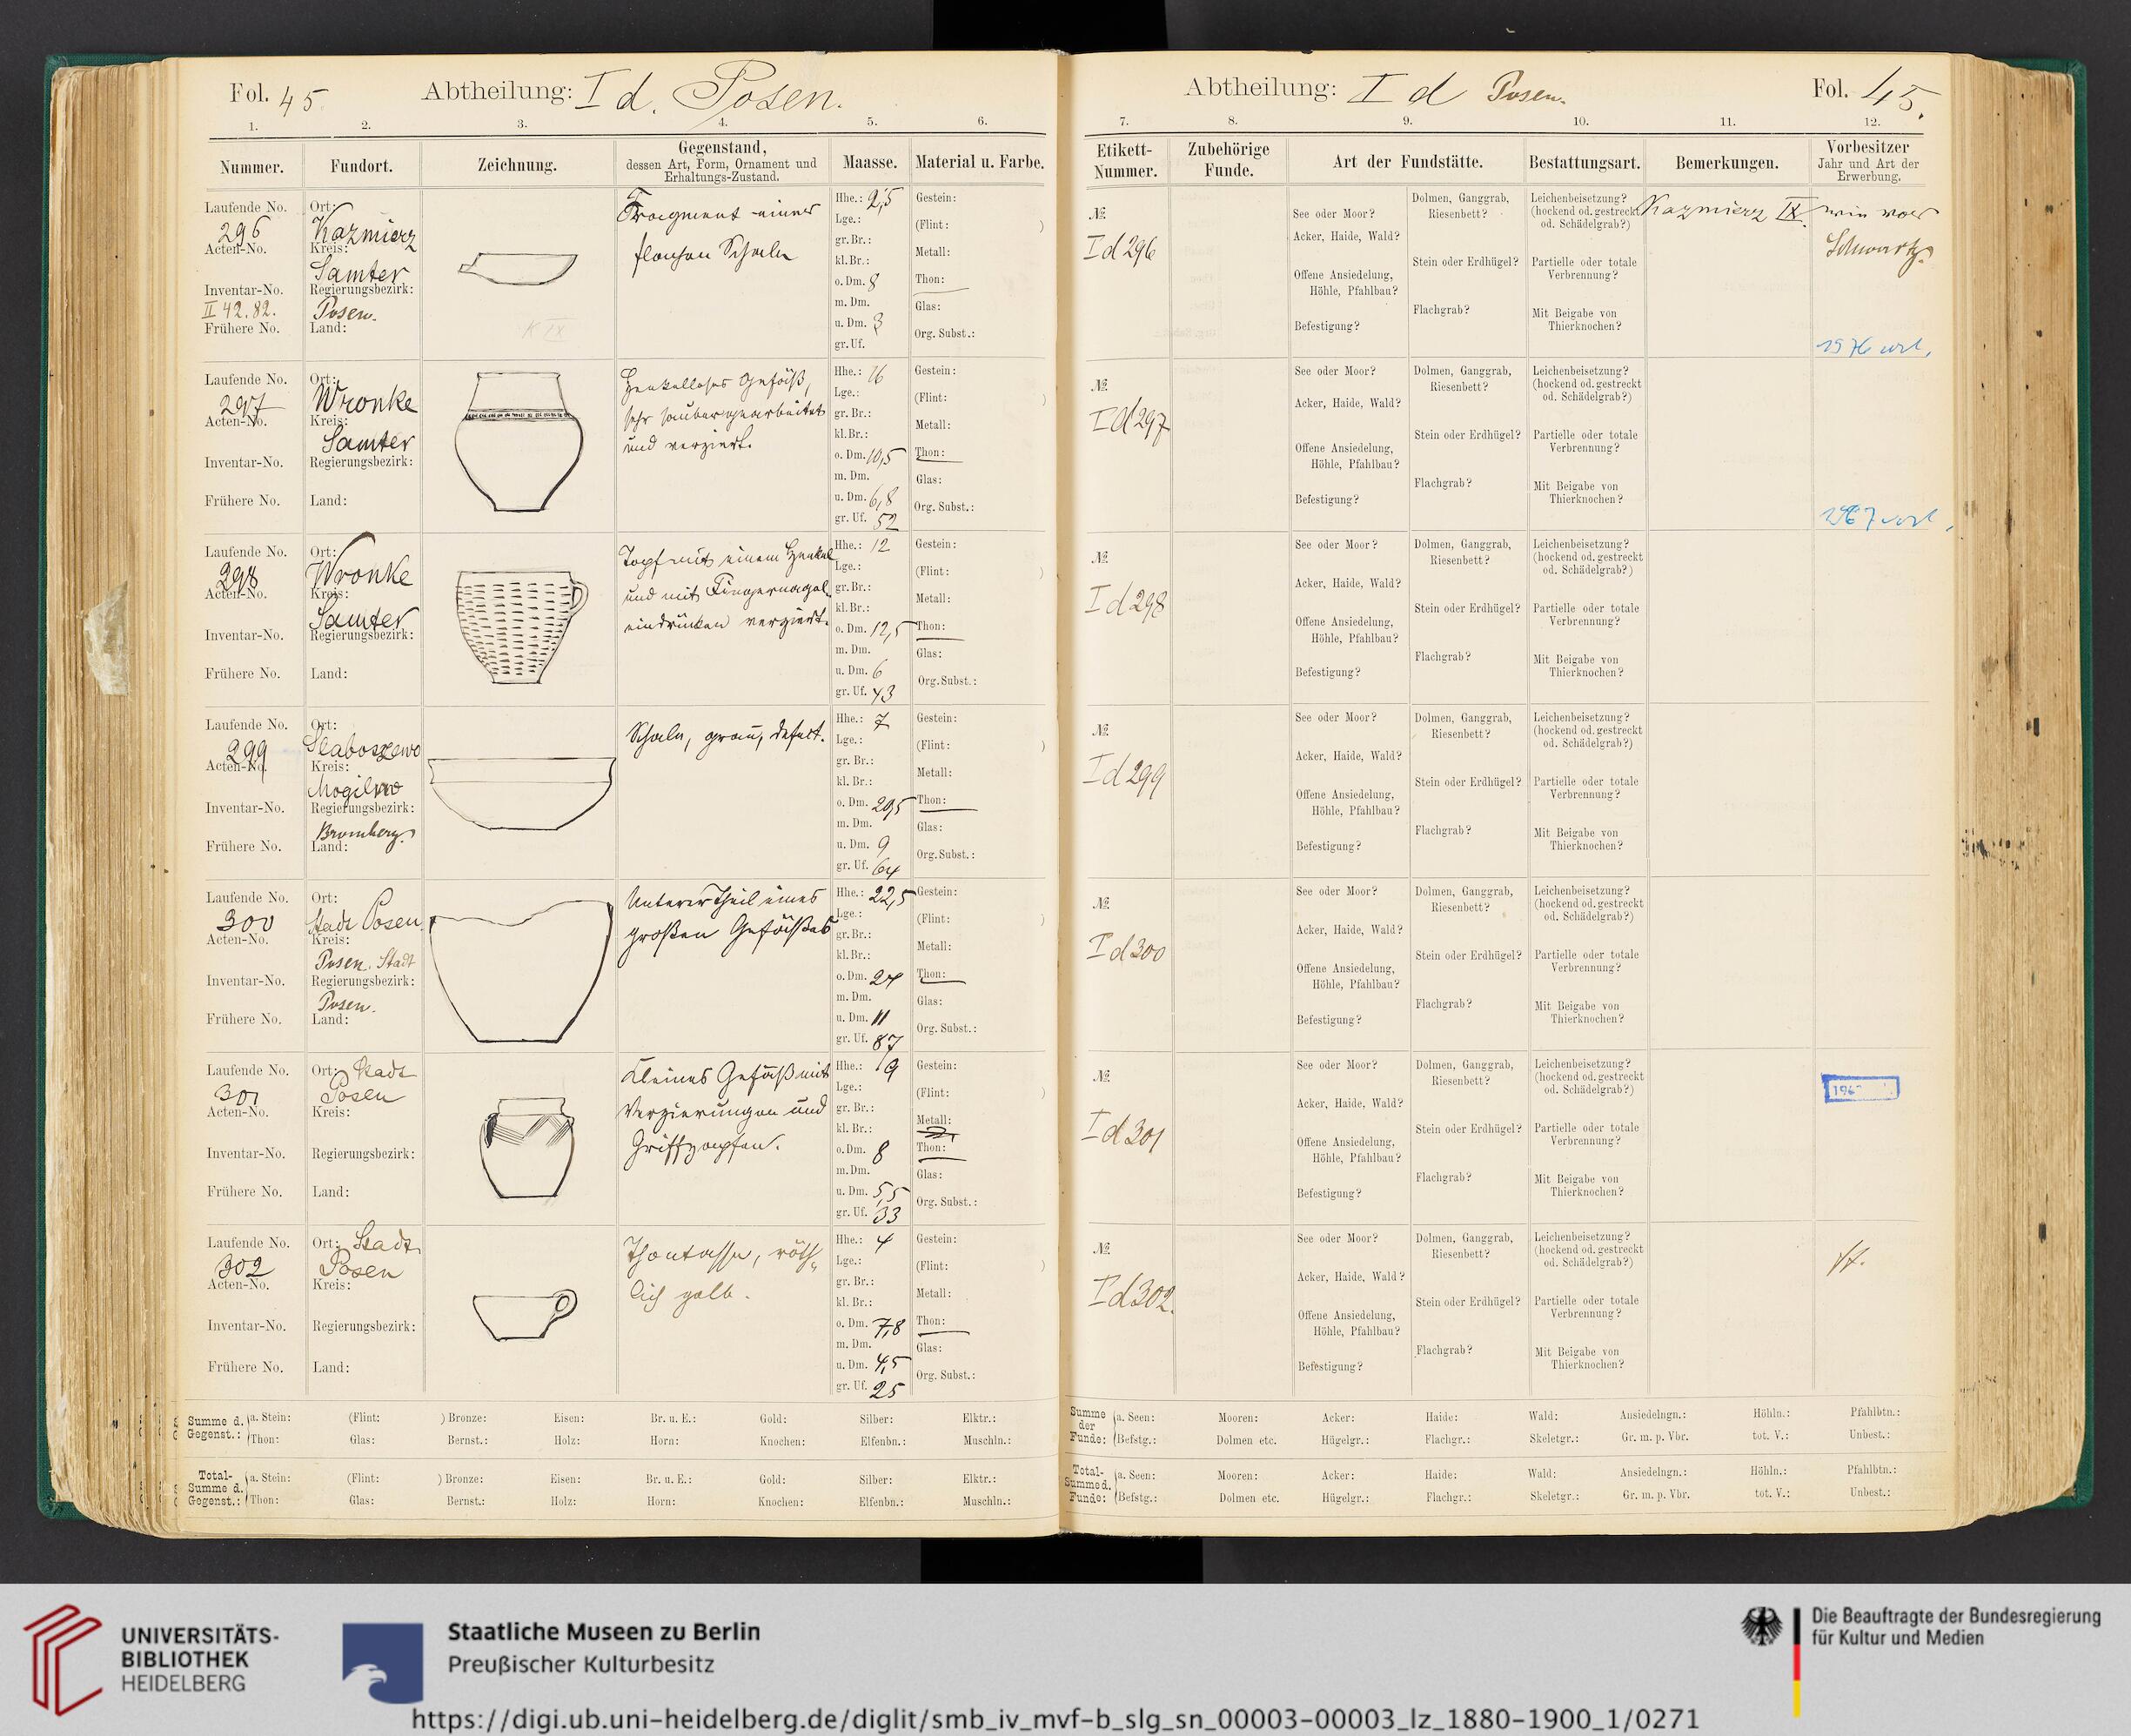 Fol. 45.
Abtheilung: I d. Posen.
1. 2. 3. 4. 5. 6.
Nummer. Fundort. Zeichnung. Gegenstand, dessen Art, Form, Ornament und Erhaltungs-Zustand. Maasse. Material u. Farbe.
Laufende No. 296
Acten-No.
Inventar-No. II 42.82.
Frühere No.
Ort: Kazmierz
Kreis: Samter
Regierungsbezirk: Posen.
Land:
K IX
Fragment einer
flachen Schale
Hhe.: 2,5
Lge.:
gr. Br.:
kl. Br.:
o. Dm. 8
m. Dm.
u. Dm. 3
gr. Uf.
Gestein:
(Flint: )
Metall:
Thon:
Glas:
Org. Subst.:
Laufende No. 297
Acten-No.
Inventar-No.
Frühere No.
Ort: Wronke
Kreis: Samter
Regierungsbezirk:
Land:
Henkelloses Gefäß,
sehr sauber gearbeitet
und verziert.
Hhe.: 16
Lge.:
gr. Br.:
kl. Br.:
o. Dm. 10,5
m. Dm.
u. Dm. 6,8
gr. Uf. 52
Gestein:
(Flint: )
Metall:
Thon:
Glas:
Org. Subst.:
Laufende No. 298
Acten-No.
Inventar-No.
Frühere No.
Ort: Wronke
Kreis: Samter
Regierungsbezirk:
Land:
Topf mit einem Henkel
und mit Fingernagel
eindrücken verziert.
Hhe.: 12
Lge.:
gr. Br.:
kl. Br.:
o. Dm. 12,5
m. Dm.
u. Dm. 6
gr. Uf. 43
Gestein:
(Flint: )
Metall:
Thon:
Glas:
Org. Subst.:
Laufende No. 299
Acten-No.
Inventar-No.
Frühere No.
Ort: Slaboszewo
Kreis: Mogilno
Regierungsbezirk: Bromberg.
Land:
Schale, grau, defect.
Hhe.: 7
Lge.:
gr. Br.:
kl. Br.:
o. Dm. 20,5
m. Dm.
u. Dm. 9
gr. Uf. 64
Gestein:
(Flint: )
Metall:
Thon:
Glas:
Org. Subst.:
Laufende No. 300
Acten-No.
Inventar-No.
Frühere No.
Ort: Stadt Posen
Kreis: Posen. Stadt
Regierungsbezirk: Posen.
Land:
Unterer Theil eines
großen Gefäßes
Hhe.: 22,5
Lge.:
gr. Br.:
kl. Br.:
o. Dm. 27
m. Dm.
u. Dm. 11
gr. Uf. 87
Gestein:
(Flint: )
Metall:
Thon:
Glas:
Org. Subst.:
Laufende No. 301
Acten-No.
Inventar-No.
Frühere No.
Ort: Stadt
Posen
Kreis:
Regierungsbezirk:
Land:
Kleines Gefäß mit
Verzierungen und
Griffzapfen.
Hhe.: 9
Lge.:
gr. Br.:
kl. Br.:
o. Dm. 8
m. Dm.
u. Dm. 5,5
gr. Uf. 33
Gestein:
(Flint: )
Metall:
Thon:
Glas:
Org. Subst.:
Laufende No. 302
Acten-No.
Inventar-No.
Frühere No.
Ort: Stadt
Posen
Kreis:
Regierungsbezirk:
Land:
Thontasse, röth-
lich gelb.
Hhe.: 4
Lge.:
gr. Br.:
kl. Br.:
o. Dm. 7,8
m. Dm.
u. Dm. 4,5
gr. Uf. 25
Gestein:
(Flint: )
Metall:
Thon:
Glas:
Org. Subst.:
Summe d. Gegenst.: a. Stein: (Flint: ) Bronze: Eisen: Br. u. E.: Gold: Silber: Elktr.:
Thon: Glas: Bernst.: Holz: Horn: Knochen: Elfenbn.: Muschln.:
Total-Summe d. Gegenst.: a. Stein: (Flint: ) Bronze: Eisen: Br. u. E.: Gold: Silber: Elktr.:
Thon: Glas: Bernst.: Holz: Horn: Knochen: Elfenbn.: Muschln.:
Abtheilung: I d Posen.
Fol. 45.
7. 8. 9. 10. 11. 12.
Etikett-Nummer. Zubehörige Funde. Art der Fundstätte. Bestattungsart. Bemerkungen. Vorbesitzer Jahr und Art der Erwerbung.
№ I d 296
See oder Moor?
Acker, Haide, Wald?
Offene Ansiedelung, Höhle, Pfahlbau?
Befestigung?
Dolmen, Ganggrab, Riesenbett?
Stein oder Erdhügel?
Flachgrab?
Leichenbeisetzung? (hockend od. gestreckt od. Schädelgrab?)
Partielle oder totale Verbrennung?
Mit Beigabe von Thierknochen?
Kazmierz IX.
wie vor
Schwartz.
№ I d 297
See oder Moor?
Acker, Haide, Wald?
Offene Ansiedelung, Höhle, Pfahlbau?
Befestigung?
Dolmen, Ganggrab, Riesenbett?
Stein oder Erdhügel?
Flachgrab?
Leichenbeisetzung? (hockend od. gestreckt od. Schädelgrab?)
Partielle oder totale Verbrennung?
Mit Beigabe von Thierknochen?
№ I d 298
See oder Moor?
Acker, Haide, Wald?
Offene Ansiedelung, Höhle, Pfahlbau?
Befestigung?
Dolmen, Ganggrab, Riesenbett?
Stein oder Erdhügel?
Flachgrab?
Leichenbeisetzung? (hockend od. gestreckt od. Schädelgrab?)
Partielle oder totale Verbrennung?
Mit Beigabe von Thierknochen?
№ I d 299
See oder Moor?
Acker, Haide, Wald?
Offene Ansiedelung, Höhle, Pfahlbau?
Befestigung?
Dolmen, Ganggrab, Riesenbett?
Stein oder Erdhügel?
Flachgrab?
Leichenbeisetzung? (hockend od. gestreckt od. Schädelgrab?)
Partielle oder totale Verbrennung?
Mit Beigabe von Thierknochen?
№ I d 300
See oder Moor?
Acker, Haide, Wald?
Offene Ansiedelung, Höhle, Pfahlbau?
Befestigung?
Dolmen, Ganggrab, Riesenbett?
Stein oder Erdhügel?
Flachgrab?
Leichenbeisetzung? (hockend od. gestreckt od. Schädelgrab?)
Partielle oder totale Verbrennung?
Mit Beigabe von Thierknochen?
№ I d 301
See oder Moor?
Acker, Haide, Wald?
Offene Ansiedelung, Höhle, Pfahlbau?
Befestigung?
Dolmen, Ganggrab, Riesenbett?
Stein oder Erdhügel?
Flachgrab?
Leichenbeisetzung? (hockend od. gestreckt od. Schädelgrab?)
Partielle oder totale Verbrennung?
Mit Beigabe von Thierknochen?
№ I d 302.
See oder Moor?
Acker, Haide, Wald?
Offene Ansiedelung, Höhle, Pfahlbau?
Befestigung?
Dolmen, Ganggrab, Riesenbett?
Stein oder Erdhügel?
Flachgrab?
Leichenbeisetzung? (hockend od. gestreckt od. Schädelgrab?)
Partielle oder totale Verbrennung?
Mit Beigabe von Thierknochen?
Summe der Funde: a. Seen: Mooren: Acker: Haide: Wald: Ansiedelngn.: Höhln.: Pfahlbtn.:
Befstg.: Dolmen etc. Hügelgr.: Flachgr.: Skeletgr.: Gr. m. p. Vbr. tot. V.: Unbest.:
Total-Summe d. Funde: a. Seen: Mooren: Acker: Haide: Wald: Ansiedelngn.: Höhln.: Pfahlbtn.:
Befstg.: Dolmen etc. Hügelgr.: Flachgr.: Skeletgr.: Gr. m. p. Vbr. tot. V.: Unbest.:
UNIVERSITÄTS-
BIBLIOTHEK
HEIDELBERG
Staatliche Museen zu Berlin
Preußischer Kulturbesitz
Die Beauftragte der Bundesregierung
für Kultur und Medien
https://digi.ub.uni-heidelberg.de/diglit/smb_iv_mvf-b_slg_sn_00003-00003_lz_1880-1900_1/0271